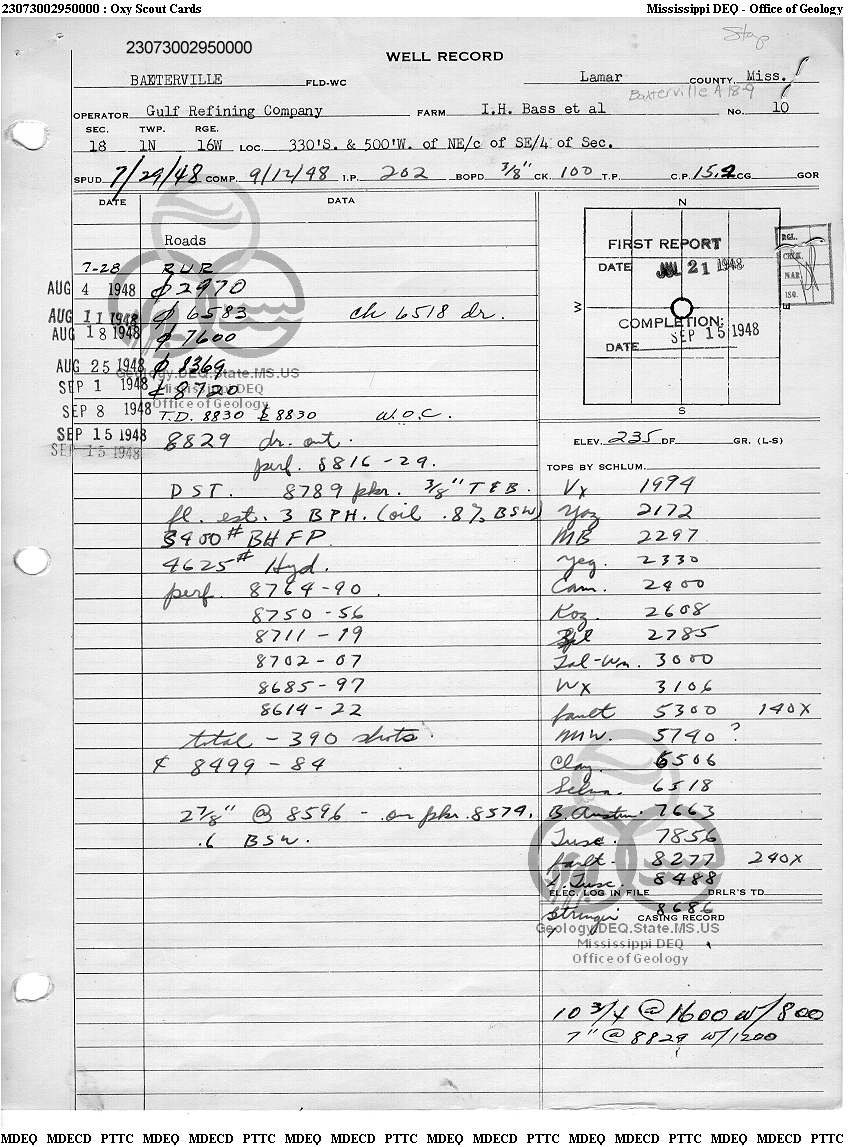 23073002950000 : Oxy Scout Cards Mississippi DEQ - Office of Geology
23073002950000
WELL RECORD
BAXTERVILLE FLD-WC Lamar COUNTY, Miss.
Baxterville A 18-9
OPERATOR Gulf Refining Company FARM I.H. Bass et al No. 10
SEC. TWP. RGE.
18 1N 16W LOC. 330'S. & 500'W. of NE/c of SE/4 of Sec.
SPUD 7/29/48 COMP. 9/12/48 I.P. 202 BOPD 3/8" CK. 100 T.P. C.P. 15.2 CG GOR
DATE DATA
Roads
7-28 RUR
AUG 4 1948 ₵ 2970
AUG 11 1948 ₵ 6583 ck 6518 dr.
AUG 18 1948 ₵ 7600
AUG 25 1948 ₵ 8369
SEP 1 1948 ₵ 8720
SEP 8 1948 T.D. 8830 ₵ 8830 W.O.C.
SEP 15 1948 8829 dr. out.
SEP 15 1948
perf. 8816-29.
DST. 8789 pkr. 3/8" T & B.
fl. est. 3 BPH. (oil .8% BSW)
3400# BHFP
4625# Hyd.
perf. 8764-90
8750-56
8711-19
8702-07
8685-97
8614-22
total - 390 shots.
₵ 8499-84
2 7/8" @ 8596 - on pkr. 8579.
.6 BSW.
Geology.DEQ.State.MS.US
Mississippi DEQ
Office of Geology
N
FIRST REPORT
DATE JUL 21 1948
W E
COMPLETION:
DATE SEP 15 1948
S
RGL.
CHLK.
MAP.
ISQ.
ELEV. 235 DF GR. (L-S)
TOPS BY SCHLUM.
Vx 1994
Yaz 2172
MB 2297
Yeg. 2330
Cam. 2400
Koz. 2608
2785
Tal-Wn. 3000
Wx 3106
fault 5300 140X
MW. 5740 ?
Clay. 6506
Selma. 6518
B. Austin. 7663
Tusc. 7856
fault - 8277 240X
L. Tusc. 8488
ELEC. LOG IN FILE DRLR'S TD
Stringer 8686
CASING RECORD
Geology.DEQ.State.MS.US
Mississippi DEQ
Office of Geology
10 3/4 @ 1600 w/800
7" @ 8829 w/1200
MDEQ MDECD PTTC MDEQ MDECD PTTC MDEQ MDECD PTTC MDEQ MDECD PTTC MDEQ MDECD PTTC MDEQ MDECD PTTC MDEQ